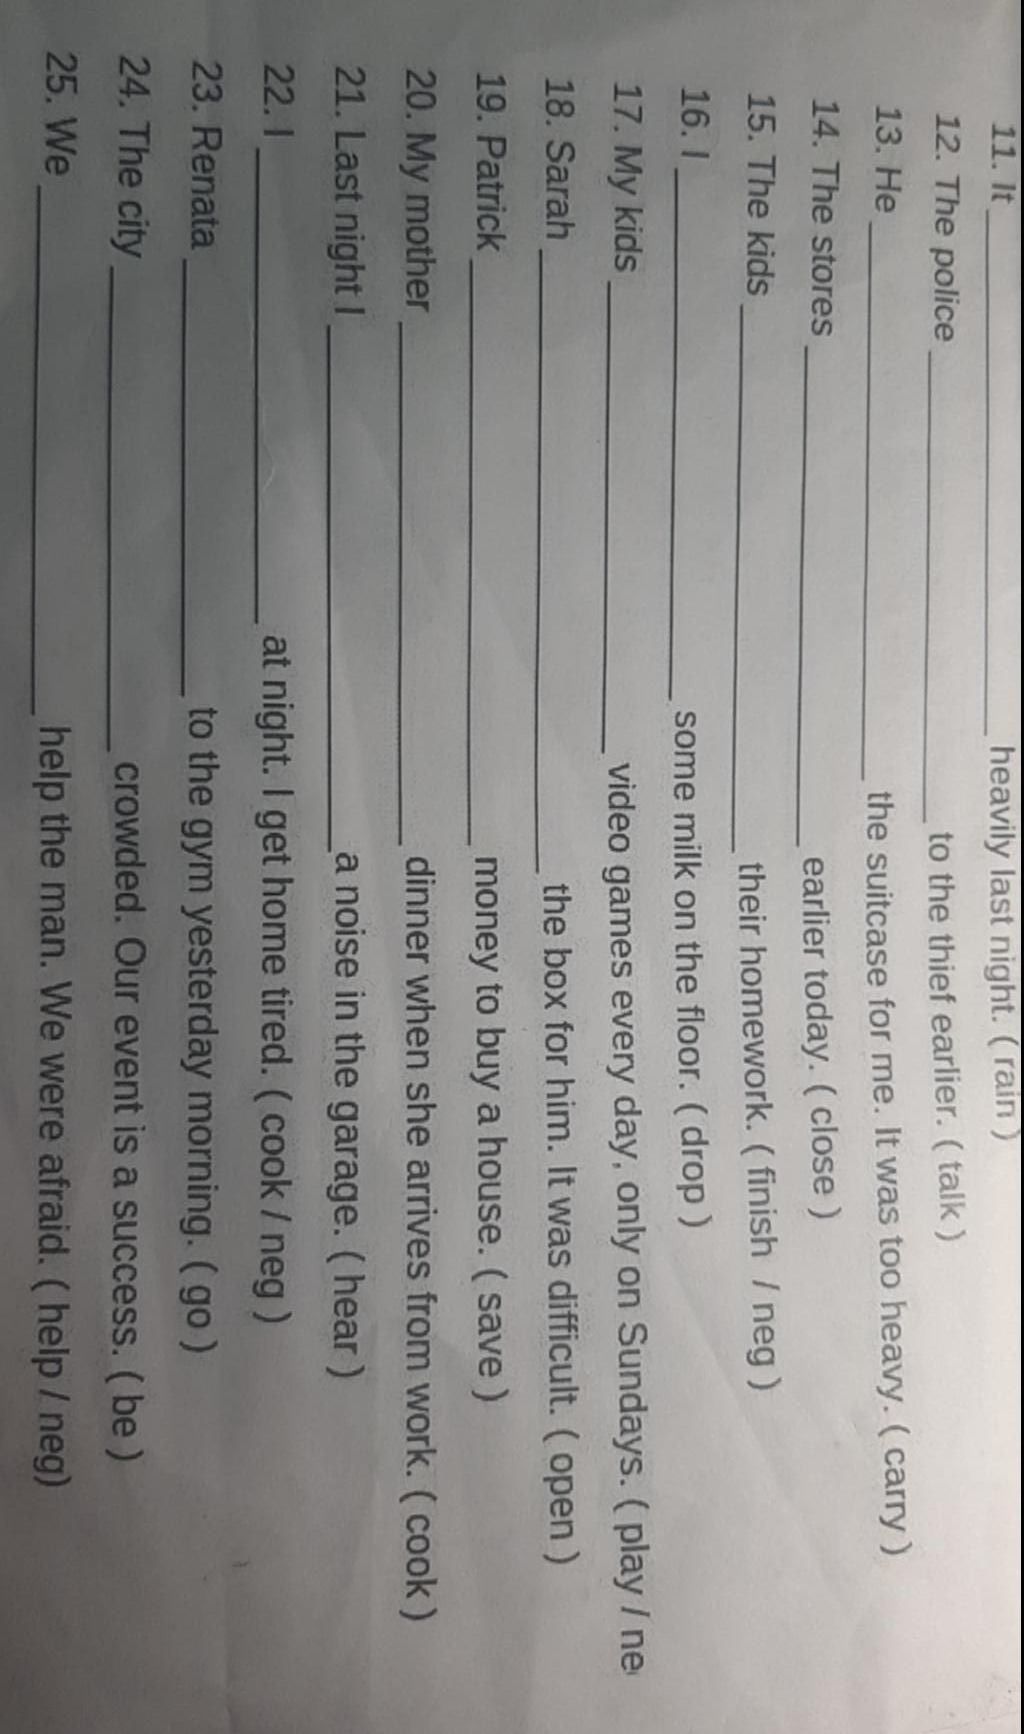 11. It ____________ heavily last night. ( rain )
12. The police ____________ to the thief earlier. ( talk )
13. He ____________ the suitcase for me. It was too heavy. ( carry )
14. The stores ____________ earlier today. ( close )
15. The kids ____________ their homework. ( finish / neg )
16. I ____________ some milk on the floor. ( drop )
17. My kids ____________ video games every day, only on Sundays. ( play / ne
18. Sarah ____________ the box for him. It was difficult. ( open )
19. Patrick ____________ money to buy a house. ( save )
20. My mother ____________ dinner when she arrives from work. ( cook )
21. Last night I ____________ a noise in the garage. ( hear )
22. I ____________ at night. I get home tired. ( cook / neg )
23. Renata ____________ to the gym yesterday morning. ( go )
24. The city ____________ crowded. Our event is a success. ( be )
25. We ____________ help the man. We were afraid. ( help / neg)